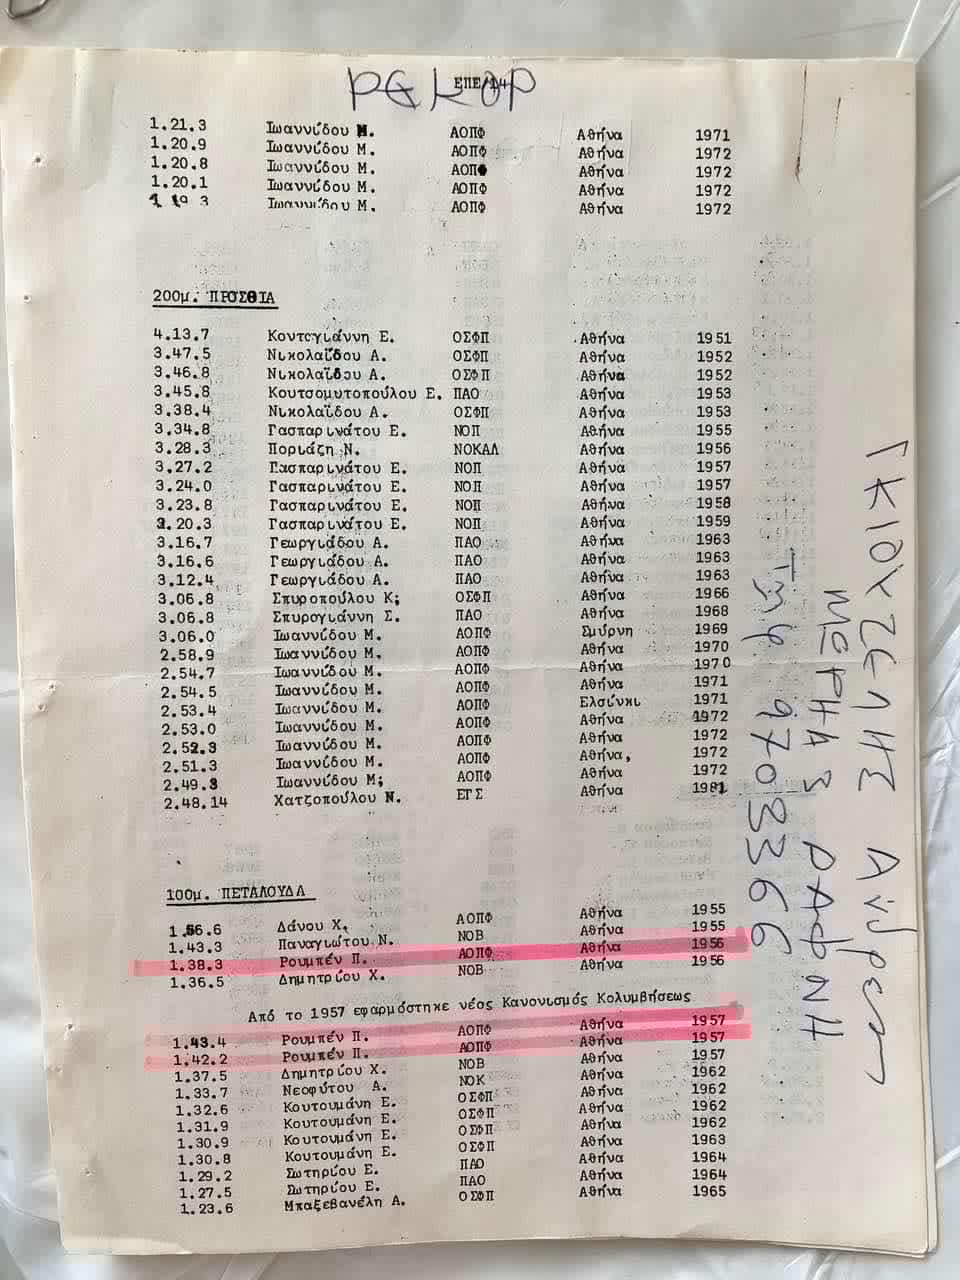 ΡΕΚΟΡ
ΕΠΕ/14
1.21.3 Ιωαννίδου Μ. ΑΟΠΦ Αθήνα 1971
1.20.9 Ιωαννίδου Μ. ΑΟΠΦ Αθήνα 1972
1.20.8 Ιωαννίδου Μ. ΑΟΠΦ Αθήνα 1972
1.20.1 Ιωαννίδου Μ. ΑΟΠΦ Αθήνα 1972
1.19.3 Ιωαννίδου Μ. ΑΟΠΦ Αθήνα 1972
200μ. ΠΡΟΣΘΙΑ
4.13.7 Κοντογιάννη Ε. ΟΣΦΠ Αθήνα 1951
3.47.5 Νικολαϊδου Α. ΟΣΦΠ Αθήνα 1952
3.46.8 Νικολαϊδου Α. ΟΣΦΠ Αθήνα 1952
3.45.8 Κουτσομυτοπούλου Ε. ΠΑΟ Αθήνα 1953
3.38.4 Νικολαϊδου Α. ΟΣΦΠ Αθήνα 1953
3.34.8 Γασπαρινάτου Ε. ΝΟΠ Αθήνα 1955
3.28.3 Ποριάζη Ν. ΝΟΚΑΛ Αθήνα 1956
3.27.2 Γασπαρινάτου Ε. ΝΟΠ Αθήνα 1957
3.24.0 Γασπαρινάτου Ε. ΝΟΠ Αθήνα 1957
3.23.8 Γασπαρινάτου Ε. ΝΟΠ Αθήνα 1958
3.20.3 Γασπαρινάτου Ε. ΝΟΠ Αθήνα 1959
3.16.7 Γεωργιάδου Α. ΠΑΟ Αθήνα 1963
3.16.6 Γεωργιάδου Α. ΠΑΟ Αθήνα 1963
3.12.4 Γεωργιάδου Α. ΠΑΟ Αθήνα 1963
3.06.8 Σπυροπούλου Κ; ΟΣΦΠ Αθήνα 1966
3.06.8 Σπυρογιάννη Σ. ΠΑΟ Αθήνα 1968
3.06.0 Ιωαννίδου Μ. ΑΟΠΦ Σμύρνη 1969
2.58.9 Ιωαννίδου Μ. ΑΟΠΦ Αθήνα 1970
2.54.7 Ιωαννίδου Μ. ΑΟΠΦ Αθήνα 1970
2.54.5 Ιωαννίδου Μ. ΑΟΠΦ Αθήνα 1971
2.53.4 Ιωαννίδου Μ. ΑΟΠΦ Ελσίνκι 1971
2.53.0 Ιωαννίδου Μ. ΑΟΠΦ Αθήνα 1972
2.52.3 Ιωαννίδου Μ. ΑΟΠΦ Αθήνα 1972
2.51.3 Ιωαννίδου Μ. ΑΟΠΦ Αθήνα, 1972
2.49.3 Ιωαννίδου Μ; ΑΟΠΦ Αθήνα 1972
2.48.14 Χατζοπούλου Ν. ΕΓΣ Αθήνα 1981
100μ. ΠΕΤΑΛΟΥΔΑ
1.56.6 Δάνου Χ. ΑΟΠΦ Αθήνα 1955
1.43.3 Παναγιώτου Ν. ΝΟΒ Αθήνα 1955
1.38.3 Ρουμπέν Π. ΑΟΠΦ Αθήνα 1956
1.36.5 Δημητρίου Χ. ΝΟΒ Αθήνα 1956
Από το 1957 εφαρμόστηκε νέος Κανονισμός Κολυμβήσεως
1.43.4 Ρουμπέν Π. ΑΟΠΦ Αθήνα 1957
1.42.2 Ρουμπέν Π. ΑΟΠΦ Αθήνα 1957
1.37.5 Δημητρίου Χ. ΝΟΒ Αθήνα 1957
1.33.7 Νεοφύτου Α. ΝΟΚ Αθήνα 1962
1.32.6 Κουτουμάνη Ε. ΟΣΦΠ Αθήνα 1962
1.31.9 Κουτουμάνη Ε. ΟΣΦΠ Αθήνα 1962
1.30.9 Κουτουμάνη Ε. ΟΣΦΠ Αθήνα 1962
1.30.8 Κουτουμάνη Ε. ΟΣΦΠ Αθήνα 1963
1.29.2 Σωτηρίου Ε. ΠΑΟ Αθήνα 1964
1.27.5 Σωτηρίου Ε. ΠΑΟ Αθήνα 1964
1.23.6 Μπαξεβανέλη Α. ΟΣΦΠ Αθήνα 1965
ΓΚΙΟΥΖΕΛΗΣ
ΜΕΡΗΑ 3 ΔΑΦΝΗ
Τηλ 9703366